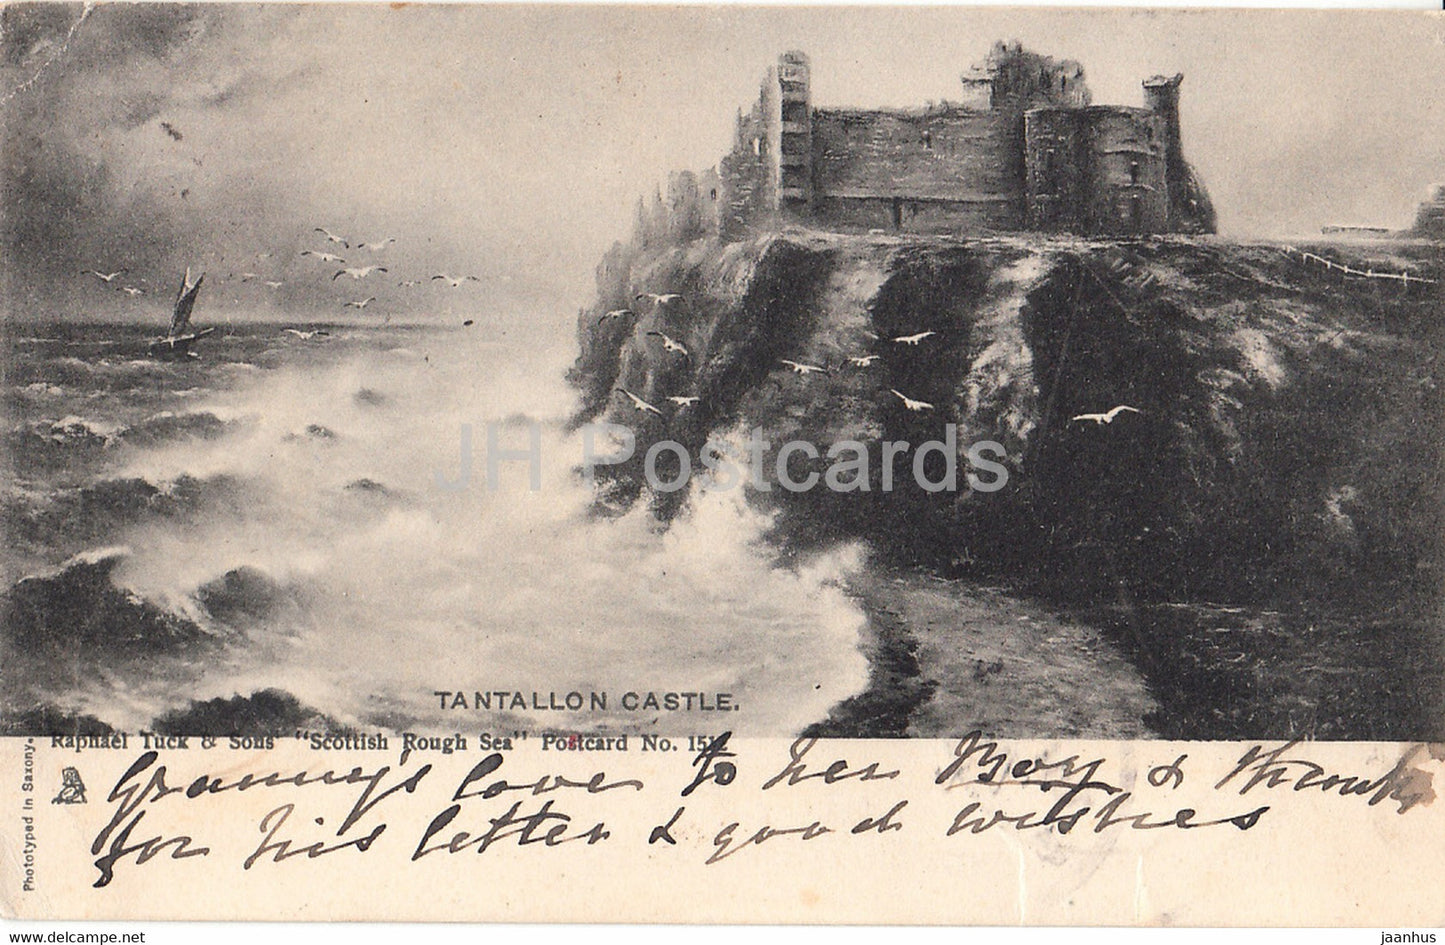 JH Postcards
TANTALLON CASTLE.
Raphael Tuck & Sons' "Scottish Rough Sea" Postcard No. 151
Phototyped in Saxony.
Granny's love to her Boy & thanks
for his letter & good wishes
www.delcampe.net
jaanhus